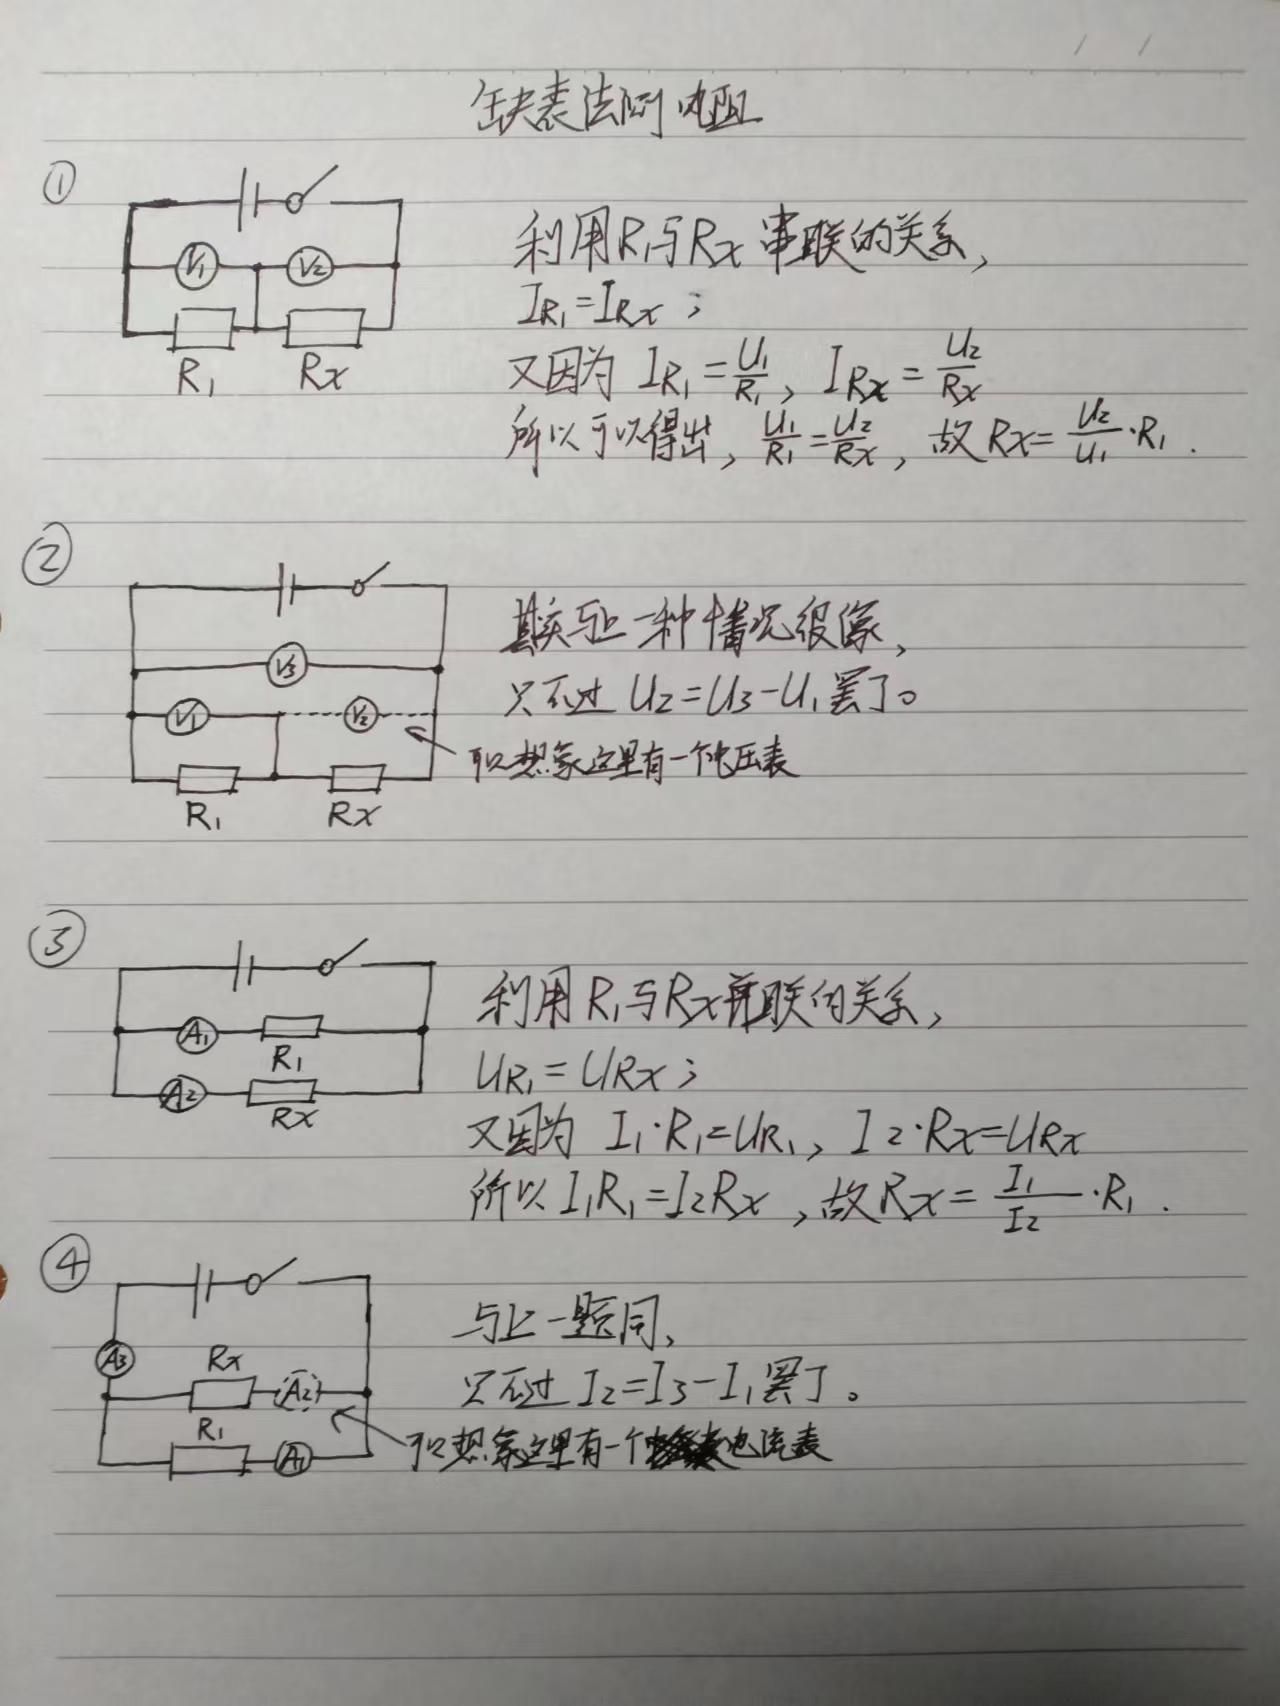 缺表法测电阻
①
V1
V2
R1
Rx
利用R1与Rx串联的关系,
IR1=IRx;
又因为 IR1=U1/R1, IRx=U2/Rx
所以可以得出, U1/R1=U2/Rx, 故Rx=U2/U1·R1.
②
V3
V1
V2
R1
Rx
其实与上一种情况很像,
只不过 U2=U3-U1罢了。
可以想象这里有一个电压表
③
A1
R1
A2
Rx
利用R1与Rx并联的关系,
UR1=URx;
又因为 I1·R1=UR1, I2·Rx=URx
所以I1R1=I2Rx, 故Rx=I1/I2·R1.
④
A3
Rx
A2
R1
A1
与上一题同,
只不过 I2=I3-I1罢了。
可以想象这里有一个电流表